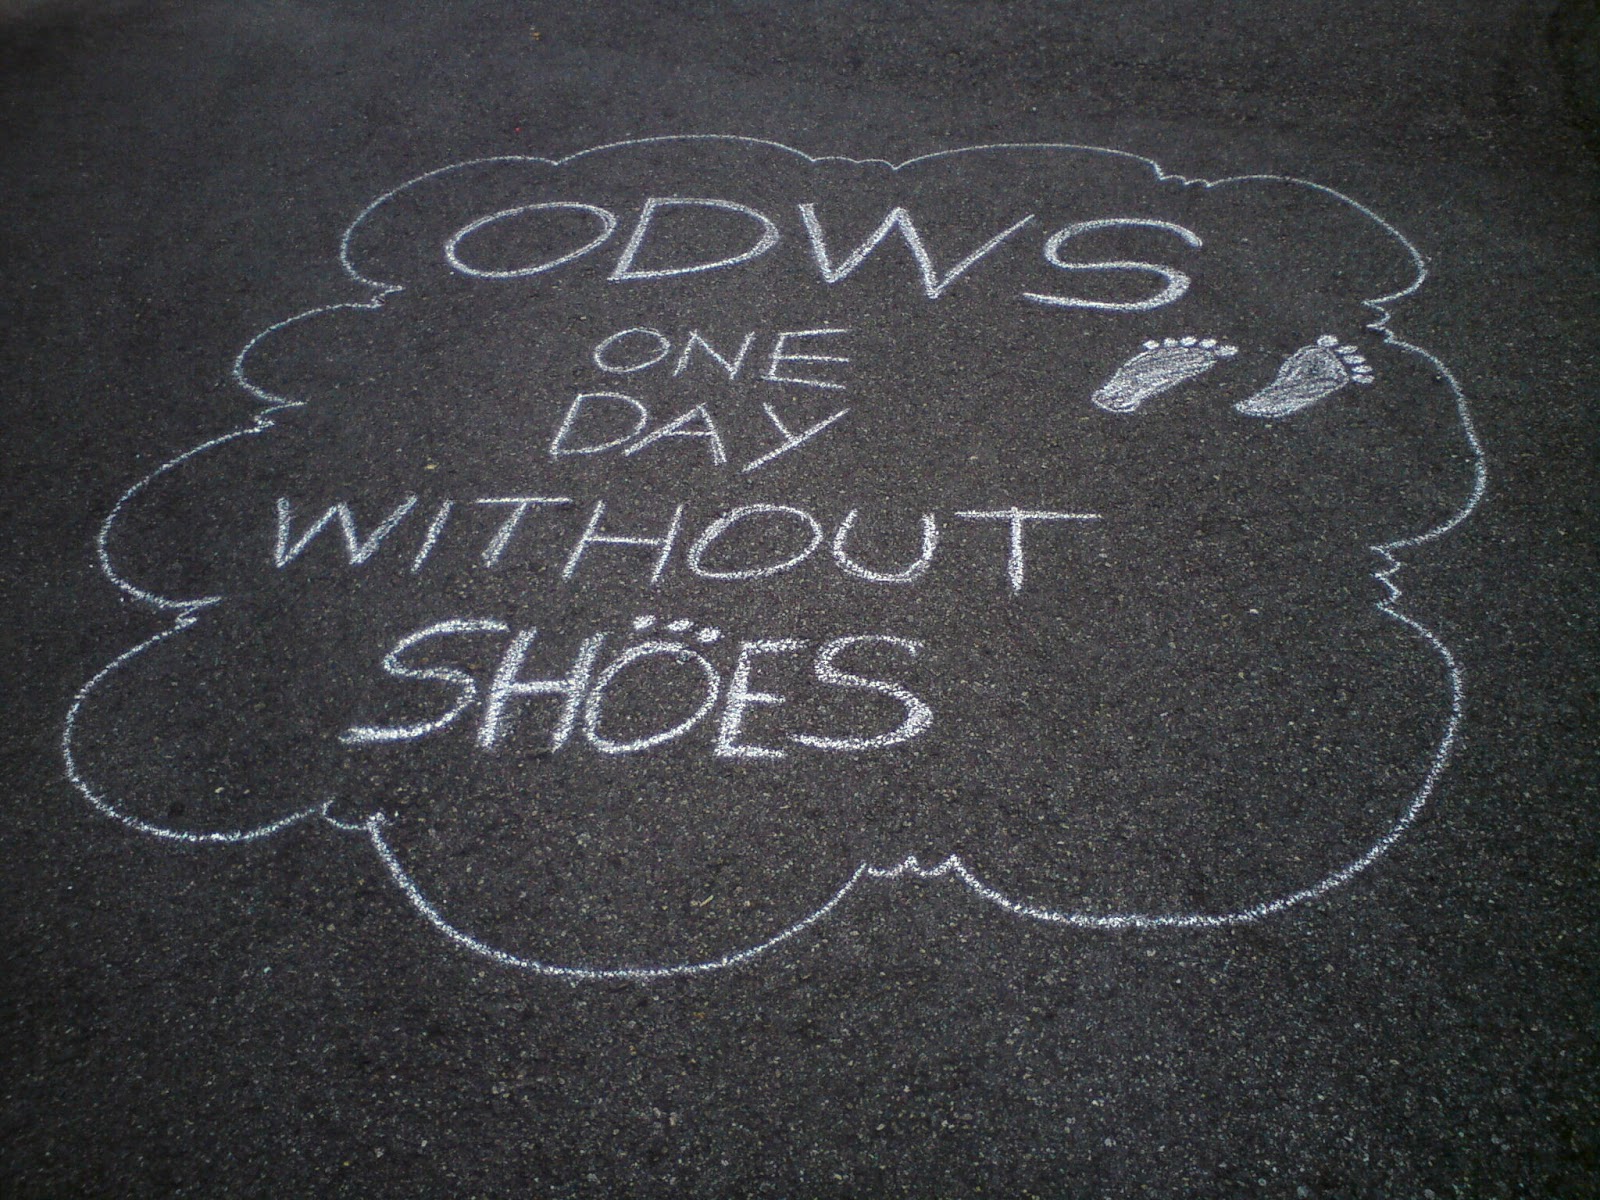 ODWS
ONE
DAY
WITHOUT
SHOES